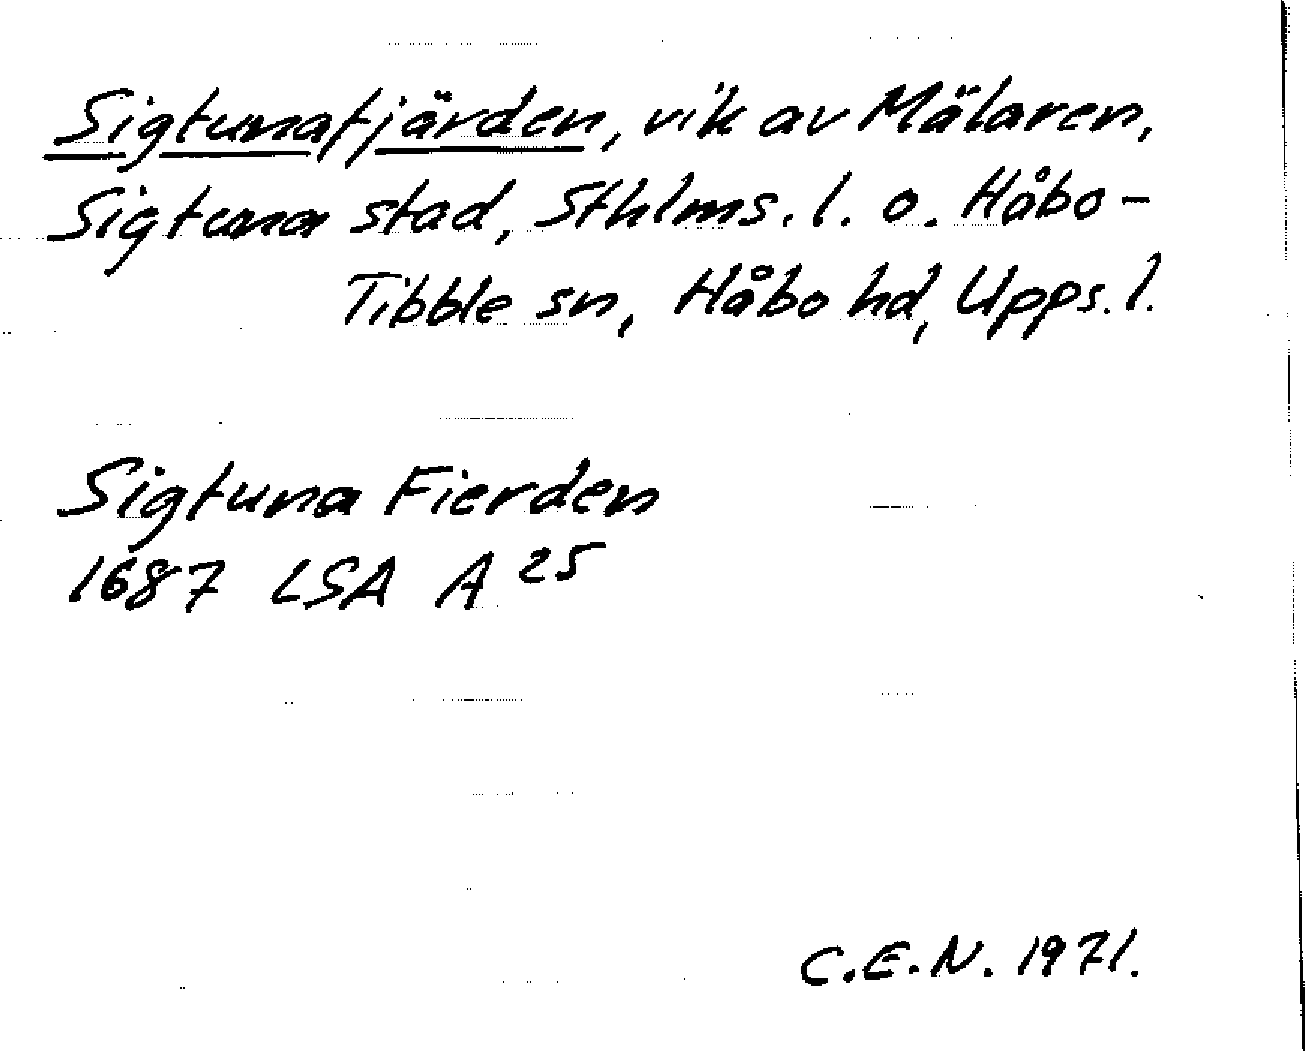 Sigtunafjärden, vik av Mälaren,
Sigtuna stad, Sthlms. l. o. Håbo-
Tibble sn, Håbo hd, Upps. l.
Sigtuna Fierden
1687 LSA A 25
C.E.N. 1971.